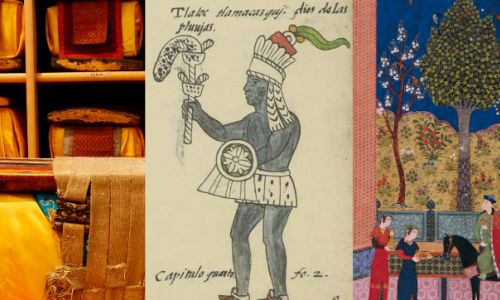 Tlaloc tlamacasquj. dios de las
pluujas.
Capitulo quarto fo. 2.